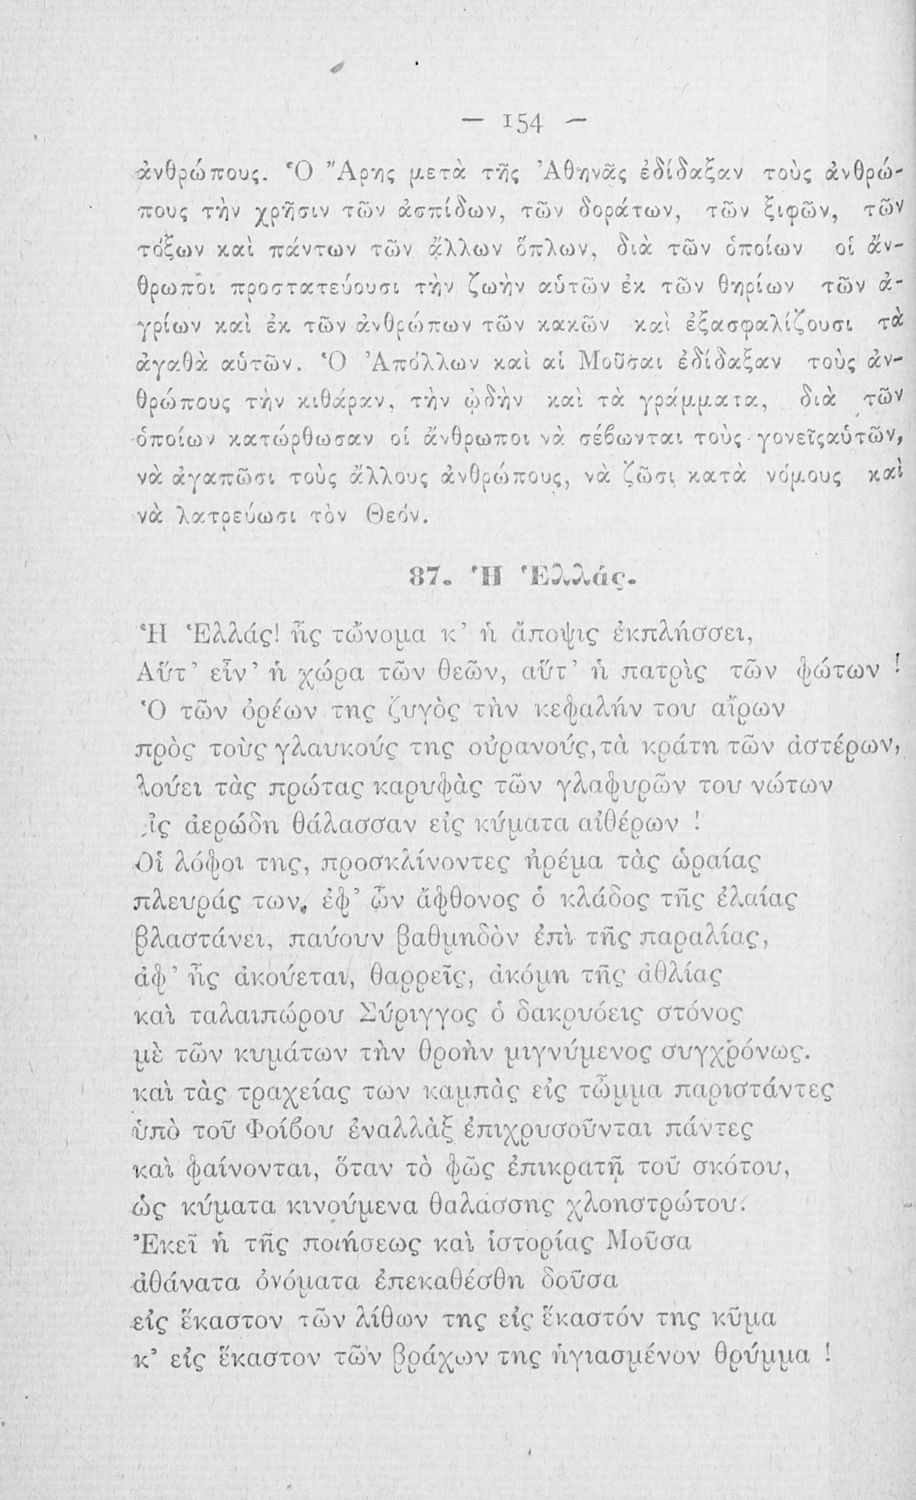 — 154 —
ἀνθρώπους. Ὁ Ἄρης μετὰ τῆς Ἀθηνᾶς ἐδίδαξαν τοὺς ἀνθρώ-
πους τὴν χρῆσιν τῶν ἀσπίδων, τῶν δοράτων, τῶν ξιφῶν, τῶν
τόξων καὶ πάντων τῶν ἄλλων ὅπλων, διὰ τῶν ὁποίων οἱ ἄν-
θρωποι προστατεύουσι τὴν ζωὴν αὑτῶν ἐκ τῶν θηρίων τῶν ἀ-
γρίων καὶ ἐκ τῶν ἀνθρώπων τῶν κακῶν καὶ ἐξασφαλίζουσι τὰ
ἀγαθὰ αὑτῶν. Ὁ Ἀπόλλων καὶ αἱ Μοῦσαι ἐδίδαξαν τοὺς ἀν-
θρώπους τὴν κιθάραν, τὴν ᾠδὴν καὶ τὰ γράμματα, διὰ τῶν
ὁποίων κατώρθωσαν οἱ ἄνθρωποι νὰ σέβωνται τοὺς γονεῖς αὑτῶν,
νὰ ἀγαπῶσι τοὺς ἄλλους ἀνθρώπους, νὰ ζῶσι κατὰ νόμους καὶ
νὰ λατρεύωσι τὸν Θεόν.
87. Ἡ Ἑλλάς.
Ἡ Ἑλλάς! ἧς τὤνομα κ’ ἡ ἄποψις ἐκπλήσσει,
Αὕτ’ εἶν’ ἡ χώρα τῶν θεῶν, αὕτ’ ἡ πατρὶς τῶν φώτων !
Ὁ τῶν ὀρέων της ζυγὸς τὴν κεφαλήν του αἴρων
πρὸς τοὺς γλαυκούς της οὐρανούς, τὰ κράτη τῶν ἀστέρων,
λούει τὰς πρώτας καρυφὰς τῶν γλαφυρῶν του νώτων
ἰς ἀερώδη θάλασσαν εἰς κύματα αἰθέρων !
Οἱ λόφοι της, προσκλίνοντες ἠρέμα τὰς ὡραίας
πλευράς των, ἐφ’ ὧν ἄφθονος ὁ κλάδος τῆς ἐλαίας
βλαστάνει, παύουν βαθμηδὸν ἐπὶ τῆς παραλίας,
ἀφ’ ἧς ἀκούεται, θαρρεῖς, ἀκόμη τῆς ἀθλίας
καὶ ταλαιπώρου Σύριγγος ὁ δακρυόεις στόνος
μὲ τῶν κυμάτων τὴν θροὴν μιγνύμενος συγχρόνως.
καὶ τὰς τραχείας των καμπὰς εἰς τὦμμα παριστάντες
ὑπὸ τοῦ Φοίβου ἐναλλὰξ ἐπιχρυσοῦνται πάντες
καὶ φαίνονται, ὅταν τὸ φῶς ἐπικρατῇ τοῦ σκότου,
ὡς κύματα κινούμενα θαλάσσης χλοηστρώτου.
Ἐκεῖ ἡ τῆς ποιήσεως καὶ ἱστορίας Μοῦσα
ἀθάνατα ὀνόματα ἐπεκαθέσθη δοῦσα
εἰς ἕκαστον τῶν λίθων της εἰς ἕκαστόν της κῦμα
κ’ εἰς ἕκαστον τῶν βράχων της ἡγιασμένον θρύμμα !